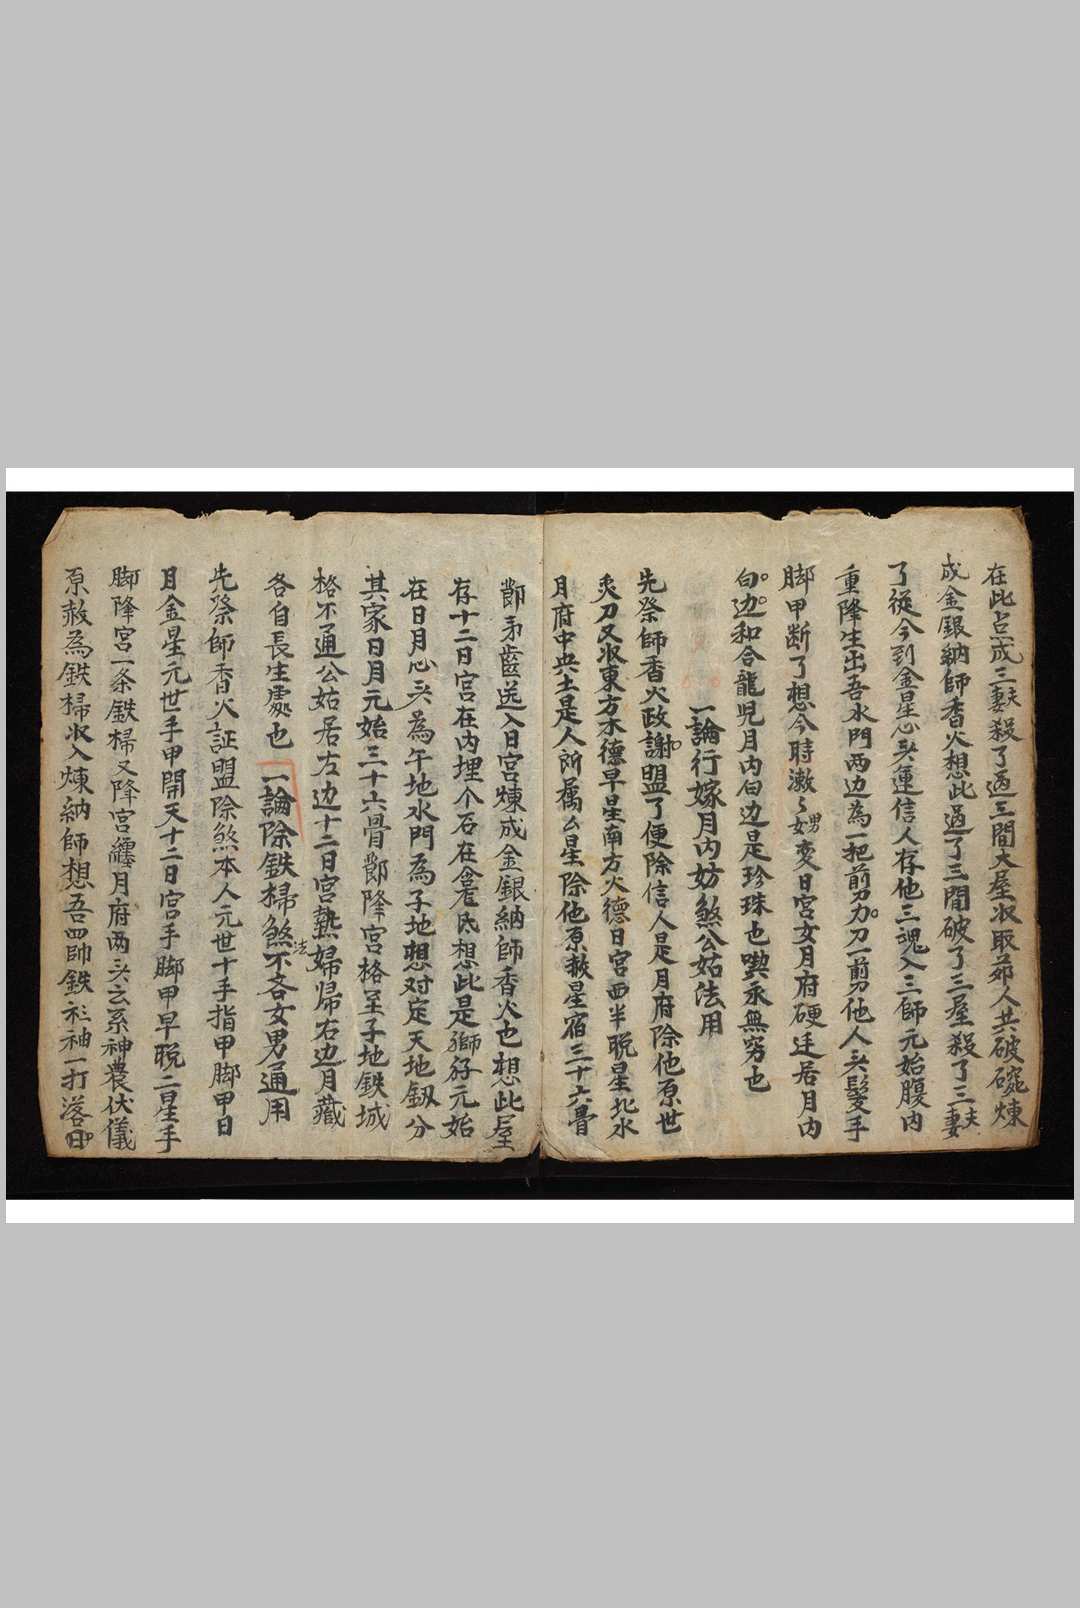 在此点成三夫妻殺了過三間大屋收取茆人共破碗煉
成金銀納師香火想此過了三間破了三屋殺了三夫妻
了從今到金星心头運信人存他三魂入三師元始腹内
重降生出吾水門两边為一把剪刀刀一剪他人头髮手
脚甲断了想今時漱々男女变日宮女月府硬迋居月内
白边和合龍児月内白边是珍珠也喫永無窮也
一論行嫁月内妨煞公姑法用
先祭師香火政謝盟了便除信人是月府除他原世
炙刀又收東方木德早星南方火德日宮西半晩星北水
月府中央土是人所属么星除他原赦星宿三十六骨
酇弟齒送入日宮煉成金銀納師香火也想此屋
存十二日宮在内埋个石在倉底想此是獅仔元始
在日月心头為午地水門為子地想对定天地釼分
其家日月元始三十六骨酇降宮格至子地鉄城
格不通公姑居左边十二日宮熟婦帰右边月藏
各自長生處也 一論除鉄掃煞法不各女男通用
先祭師香火証盟除煞本人元世十手指甲脚甲日
月金星元世手甲開天十二日宮手脚甲早晩二星手
脚降宮一条鉄掃又降宮纏月府两头玄系神農伏儀
原赦為鉄掃收入煉納師想吾四帥鉄衫袖一打落日